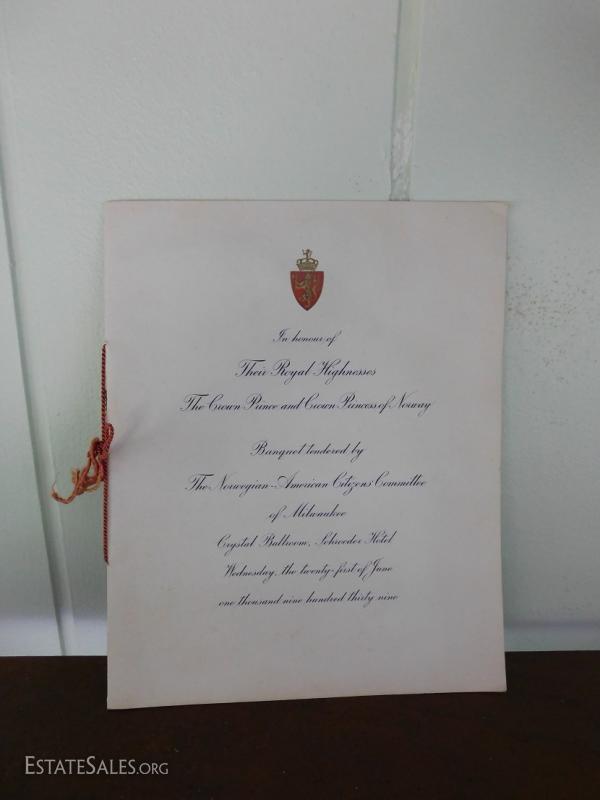 In honour of
Their Royal Highnesses
The Crown Prince and Crown Princess of Norway
Banquet tendered by
The Norwegian-American Citizens Committee
of Milwaukee
Crystal Ballroom, Schroeder Hotel
Wednesday, the twenty-first of June
one thousand nine hundred thirty nine
ESTATESALES.ORG